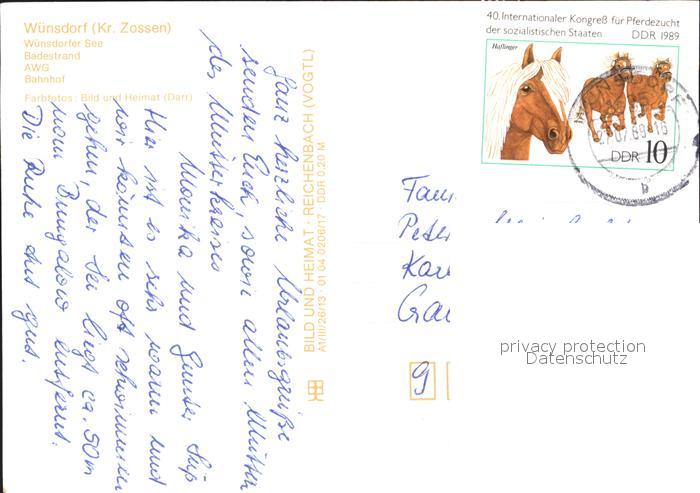 Wünsdorf (Kr. Zossen)
Wünsdorfer See
Badestrand
AWG
Bahnhof
Farbfotos: Bild und Heimat (Darr)
40. Internationaler Kongreß für Pferdezucht
der sozialistischen Staaten DDR 1989
Haflinger
DDR 10
BILD UND HEIMAT · REICHENBACH (VOGTL)
A1/III/26/13 01 04 0206/17 DDR 0,20 M
Ganz herzliche Urlaubsgrüße
senden Euch, sowie allen Mütter
des Mütterkreises
Monika und Günter
Hier ist es sehr warm und
wir können oft schwimmen
gehn, der See liegt ca. 50m
vom Bungalow entfernt.
Die Ruhe tut gut.
Fam.
Peter
Kar
Gau
9
privacy protection
Datenschutz